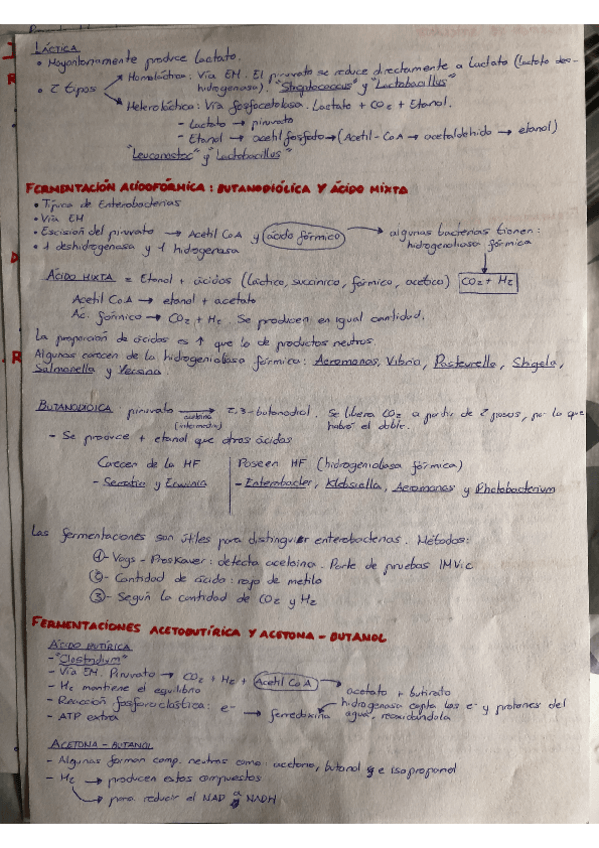 LÁCTICA
• Mayoritariamente produce lactato.
• 2 tipos → Homoláctica: Vía EM. El piruvato se reduce directamente a Lactato (lactato des-
hidrogenasa). "Streptococcus" y "Lactobacillus"
→ Heteroláctica: Vía fosfocetolasa. Lactato + CO2 + Etanol.
- Lactato → piruvato
- Etanol → acetilfosfato → (Acetil-CoA → acetaldehído → etanol)
"Leuconostoc" y "Lactobacillus"
FERMENTACIÓN ACIDOFÓRMICA: BUTANODIÓLICA Y ÁCIDO MIXTA
• Típica de Enterobacterias
• Vía EM
• Escisión del piruvato → Acetil CoA y ácido fórmico → algunas bacterias tienen:
• 1 deshidrogenasa y 1 hidrogenasa hidrogenoliasa fórmica
ÁCIDO MIXTA = Etanol + ácidos (láctico, succínico, fórmico, acético) CO2 + H2
Acetil CoA → etanol + acetato
Ac. fórmico → CO2 + H2. Se producen en igual cantidad.
La proporción de ácidos es ↑ que la de productos neutros.
Algunas carecen de la hidrogenoliasa fórmica: Aeromonas, Vibrio, Pasteurella, Shigela,
Salmonella y Yersina.
BUTANODIÓICA piruvato → 2,3-butanodiol. Se libera CO2 a partir de 2 pasos, por lo que
acetoína (intermedia) habrá el doble.
- Se produce + etanol que otros ácidos
Carecen de la HF Poseen HF (hidrogenoliasa fórmica)
- Serratia y Erwinia - Enterobacter, Klebsiella, Aeromonas y Photobacterium
Las fermentaciones son útiles para distinguir enterobacterias. Métodos:
①- Vogs-Proskauer: detecta acetoína. Parte de pruebas IMViC
②- Cantidad de ácido: rojo de metilo
③- Según la cantidad de CO2 y H2
FERMENTACIONES ACETOBUTÍRICA Y ACETONA-BUTANOL
ÁCIDO BUTÍRICA
- "Clostridium"
- Vía EM. Piruvato → CO2 + H2 + Acetil CoA → acetato + butirato
- H2 mantiene el equilibrio
- Reacción fosforoclástica: e- → ferredoxina → hidrogenasa capta los e- y protones del
- ATP extra agua, reoxidándola
ACETONA-BUTANOL
- Algunas forman comp. neutros como: acetona, butanol e isopropanol
- H2 → producen estos compuestos
→ para reducir el NAD a NADH